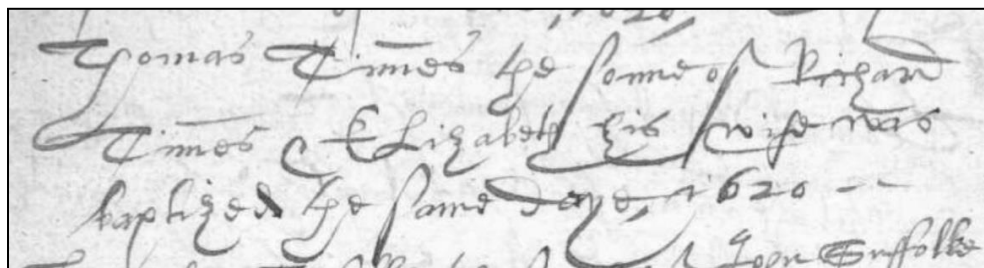 Thomas Tim̄es the sonne of Richard
Tim̄es & Elizabeth his wife was
baptized the same daye, 1620 --
John Suffolke